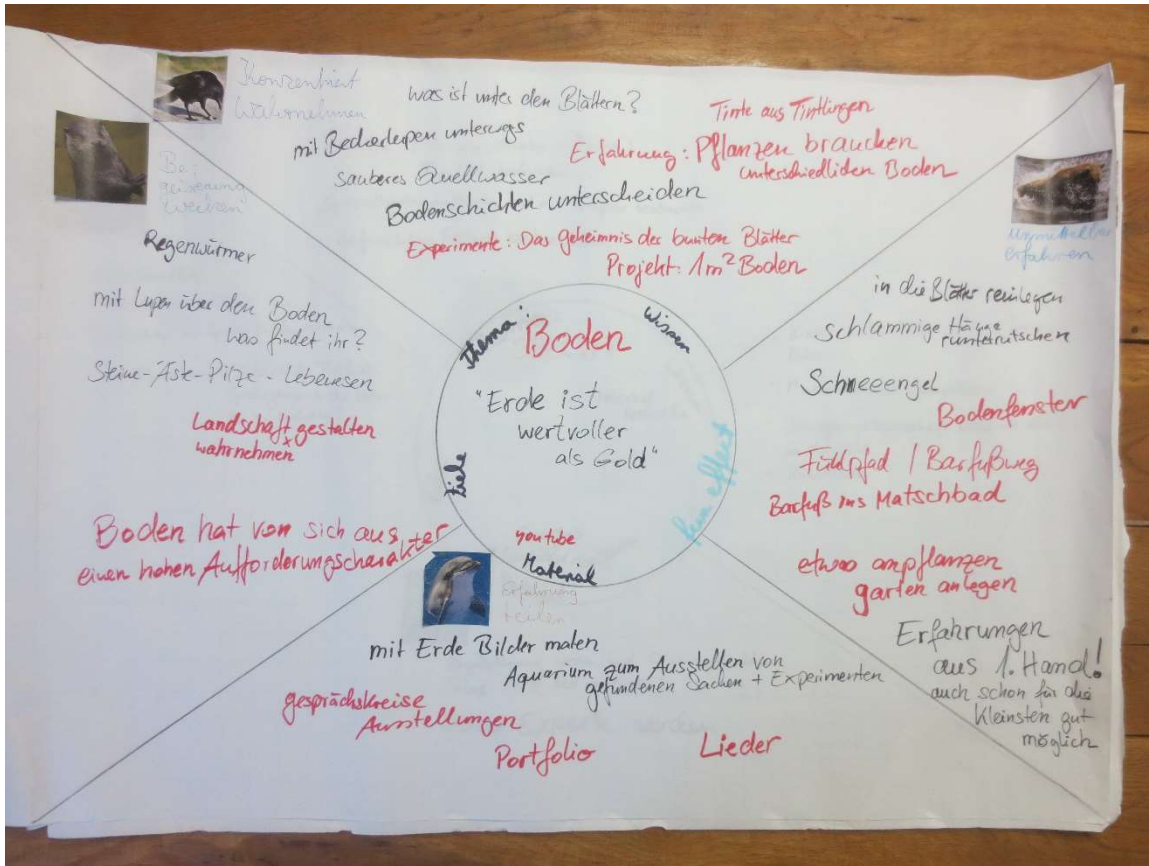 Konzentriert
Wahrnehmen
was ist unter den Blättern?
mit Becherlupen unterwegs
sauberes Quellwasser
Bodenschichten unterscheiden
Tinte aus Tintlingen
Erfahrung: Pflanzen brauchen
unterschiedlichen Boden
Experimente: Das geheimnis der bunten Blätter
Projekt: 1m² Boden
Be-
geisterung
wecken
Regenwürmer
mit Lupen über den Boden
was findet ihr?
Steine-Äste-Pilze-Lebewesen
Landschaft gestalten
+
wahrnehmen
Boden hat von sich aus
einen hohen Aufforderungscharakter
Thema:
Wissen
Boden
"Erde ist
wertvoller
als Gold"
Ziele
fun effect
youtube
Material
Unmittelbar
erfahren
in die Blätter reinlegen
schlammige Hänge
runterrutschen
Schneeengel
Bodenfenster
Fühlpfad / Barfußweg
Barfuß ins Matschbad
etwas anpflanzen
garten anlegen
Erfahrungen
aus 1. Hand!
auch schon für die
Kleinsten gut
möglich
Erfahrung
teilen
mit Erde Bilder malen
Aquarium zum Ausstellen von
gefundenen Sachen + Experimenten
gesprächskreise
Ausstellungen
Portfolio
Lieder